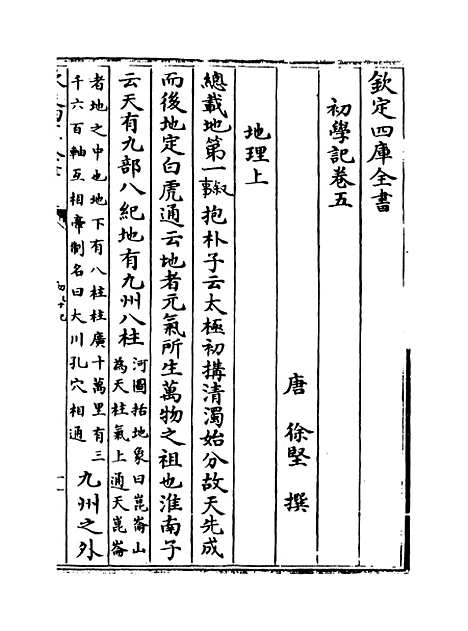 欽定四庫全書
初學記卷五
唐 徐堅 撰
地理上
總載地第一敘事抱朴子云太極初搆清濁始分故天先成
而後地定白虎通云地者元氣所生萬物之祖也淮南子
云天有九部八紀地有九州八柱河圖括地象曰崑崙山
為天柱氣上通天崑崙
者地之中也地下有八柱柱廣十萬里有三
千六百軸互相牽制名曰大川孔穴相通九州之外